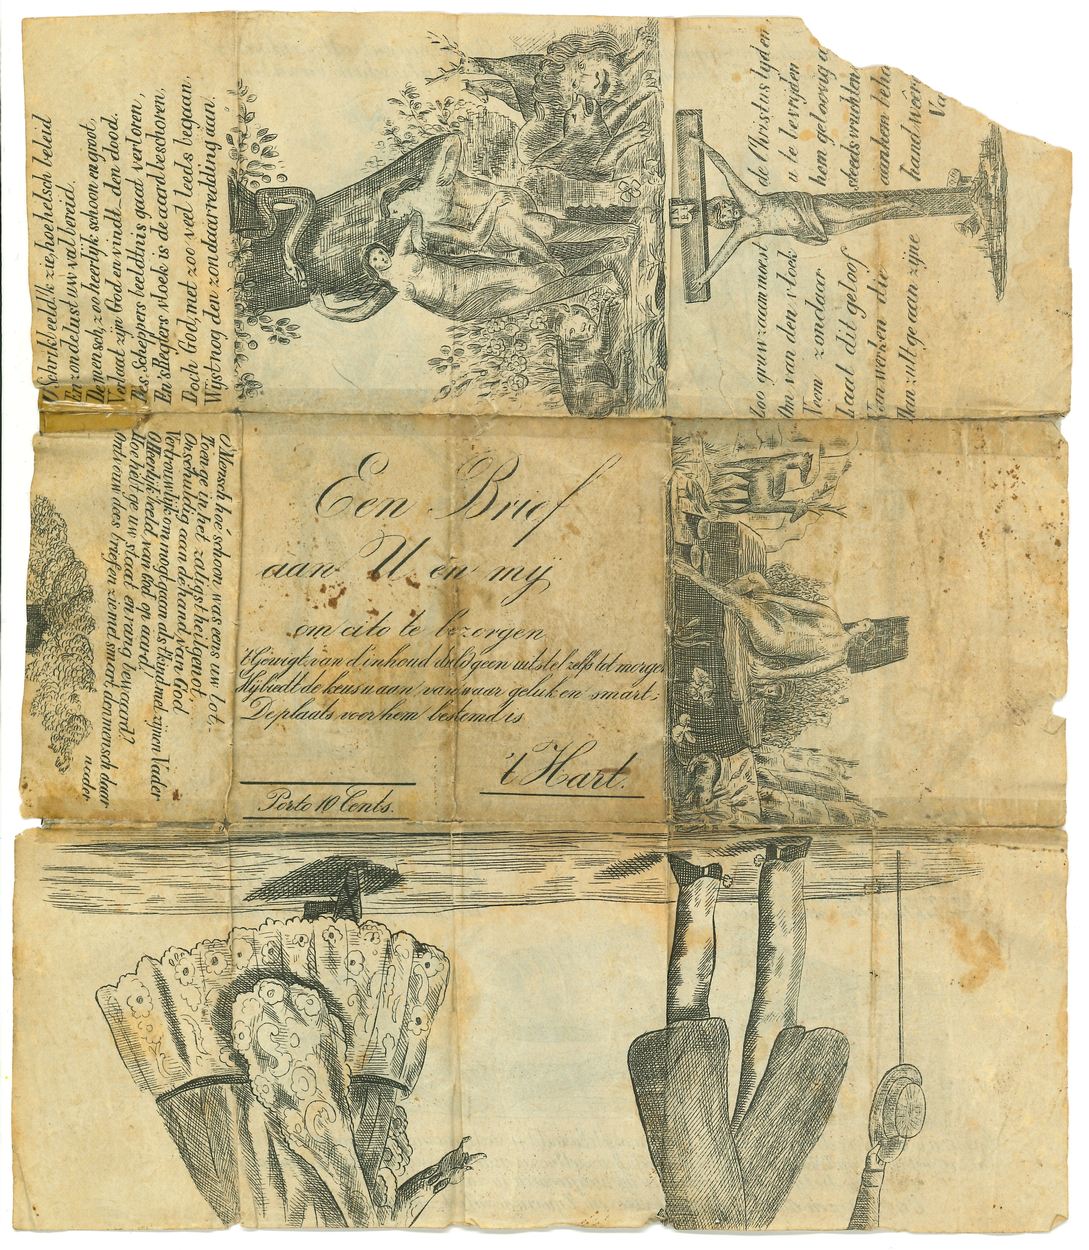 Een Brief
aan U en mij
om cito te bezorgen
't Gewigt van d'inhoud duldt geen uitstel zelfs tot morgen
Hij biedt de keus u aan, van waar geluk en smart;
De plaats voor hem bestemd is
't Hart.
Porto 10 Cents.
Mensch hoé schoon was eens uw lot,
Toen ge in het zaligst heilgenot,
Onschuldig aan de hand van God
Vertrouwlijk om mogt gaan als 't kind met zijnen Vader
O Heerlijk beeld van God op aard!
Hoe hebt ge uw staat en rang bewaard?
Ontvouw dees brief en zie met smart den mensch daar
neder
Verschrikkelijk zie hoe helsch beleid
En zondelust uw val bereid.
De mensch, zoo heerlijk schoon en groot,
Verlaat zijn God en vindt den dood.
Des Scheppers beeldtnis gaat verloren,
En Siddegfors vloek is de aard beschoren,
Doch God, met zoo veel leeds begaan,
Wijst nog den zondaar redding aan.
Zoo gruwzaam moest de Christus lyden
Om van den vloek u te bevrijden
Neem zondaar hem geloovig
Laat dit geloof steeds vruchten
Van werken die aan hem
Dan zult ge aan zijne hand
IN
RI